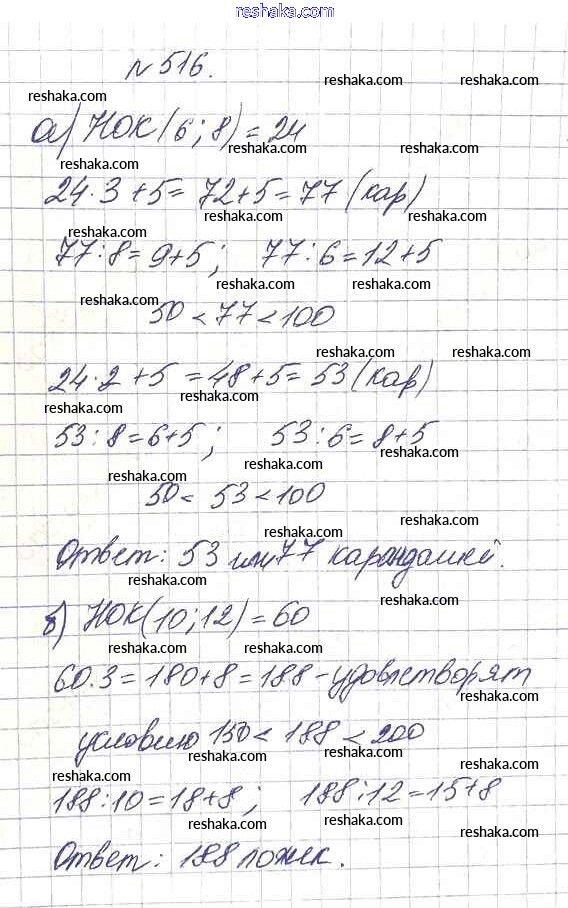 reshaka.com
№516.
reshaka.com
reshaka.com
а) НОК(6;8)=24
reshaka.com reshaka.com
reshaka.com
24·3+5=72+5=77 (кар)
reshaka.com reshaka.com
77:8=9+5; 77:6=12+5
reshaka.com reshaka.com
reshaka.com
50<77<100
reshaka.com reshaka.com
24·2+5=48+5=53 (кар)
reshaka.com reshaka.com
53:8=6+5; 53:6=8+5
reshaka.com reshaka.com
50<53<100
reshaka.com
Ответ: 53 или 77 карандашей.
reshaka.com reshaka.com
б) НОК(10;12)=60
reshaka.com reshaka.com
60·3=180+8=188-удовлетворят
reshaka.com reshaka.com
условию 150<188<200
reshaka.com reshaka.com
reshaka.com
188:10=18+8; 188:12=15+8
reshaka.com reshaka.com
Ответ: 188 ложек.
reshaka.com reshaka.com